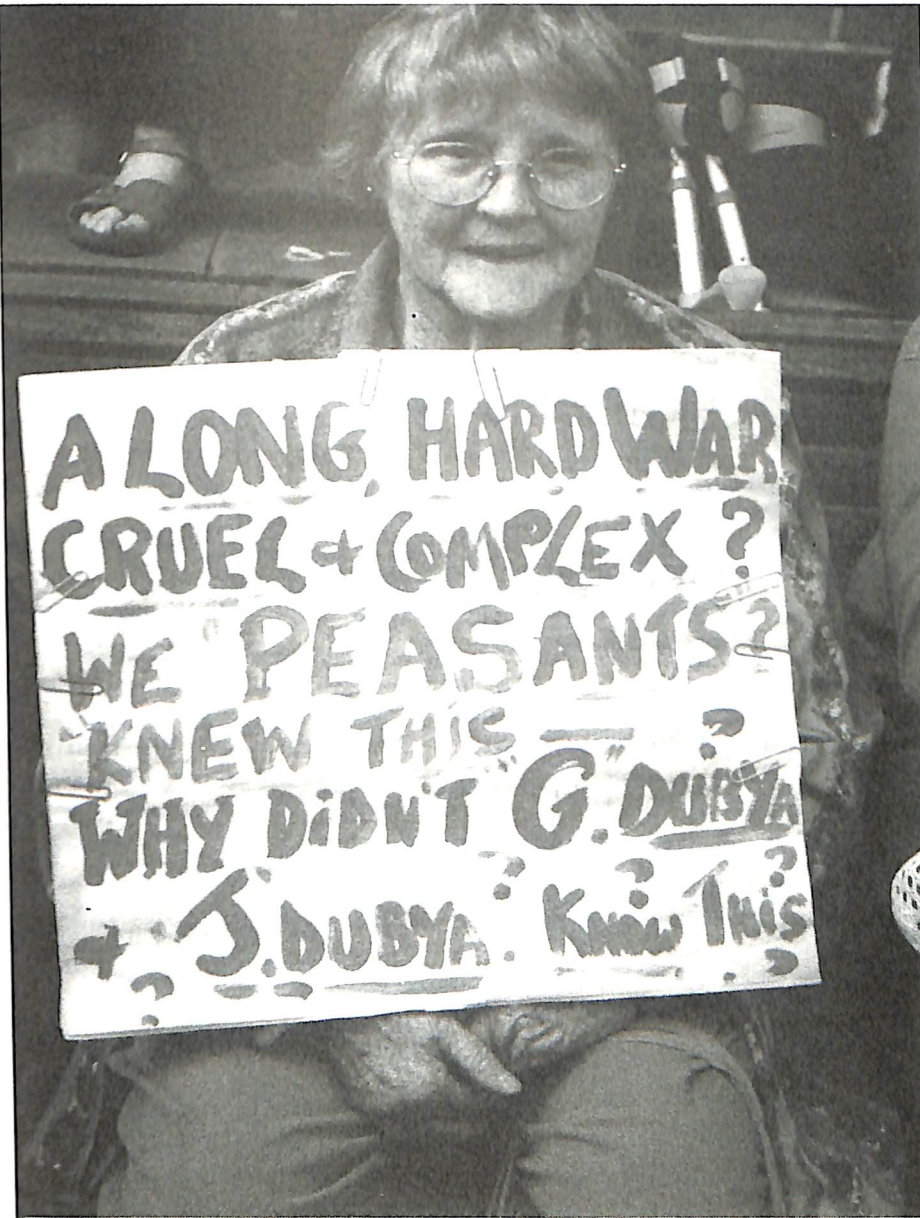 A LONG, HARD WAR
CRUEL & COMPLEX ?
WE PEASANTS?
KNEW THIS — ?
WHY DIDN'T "G." DUBYA
& J. DUBYA. ? KNOW ? THIS ?
? ?